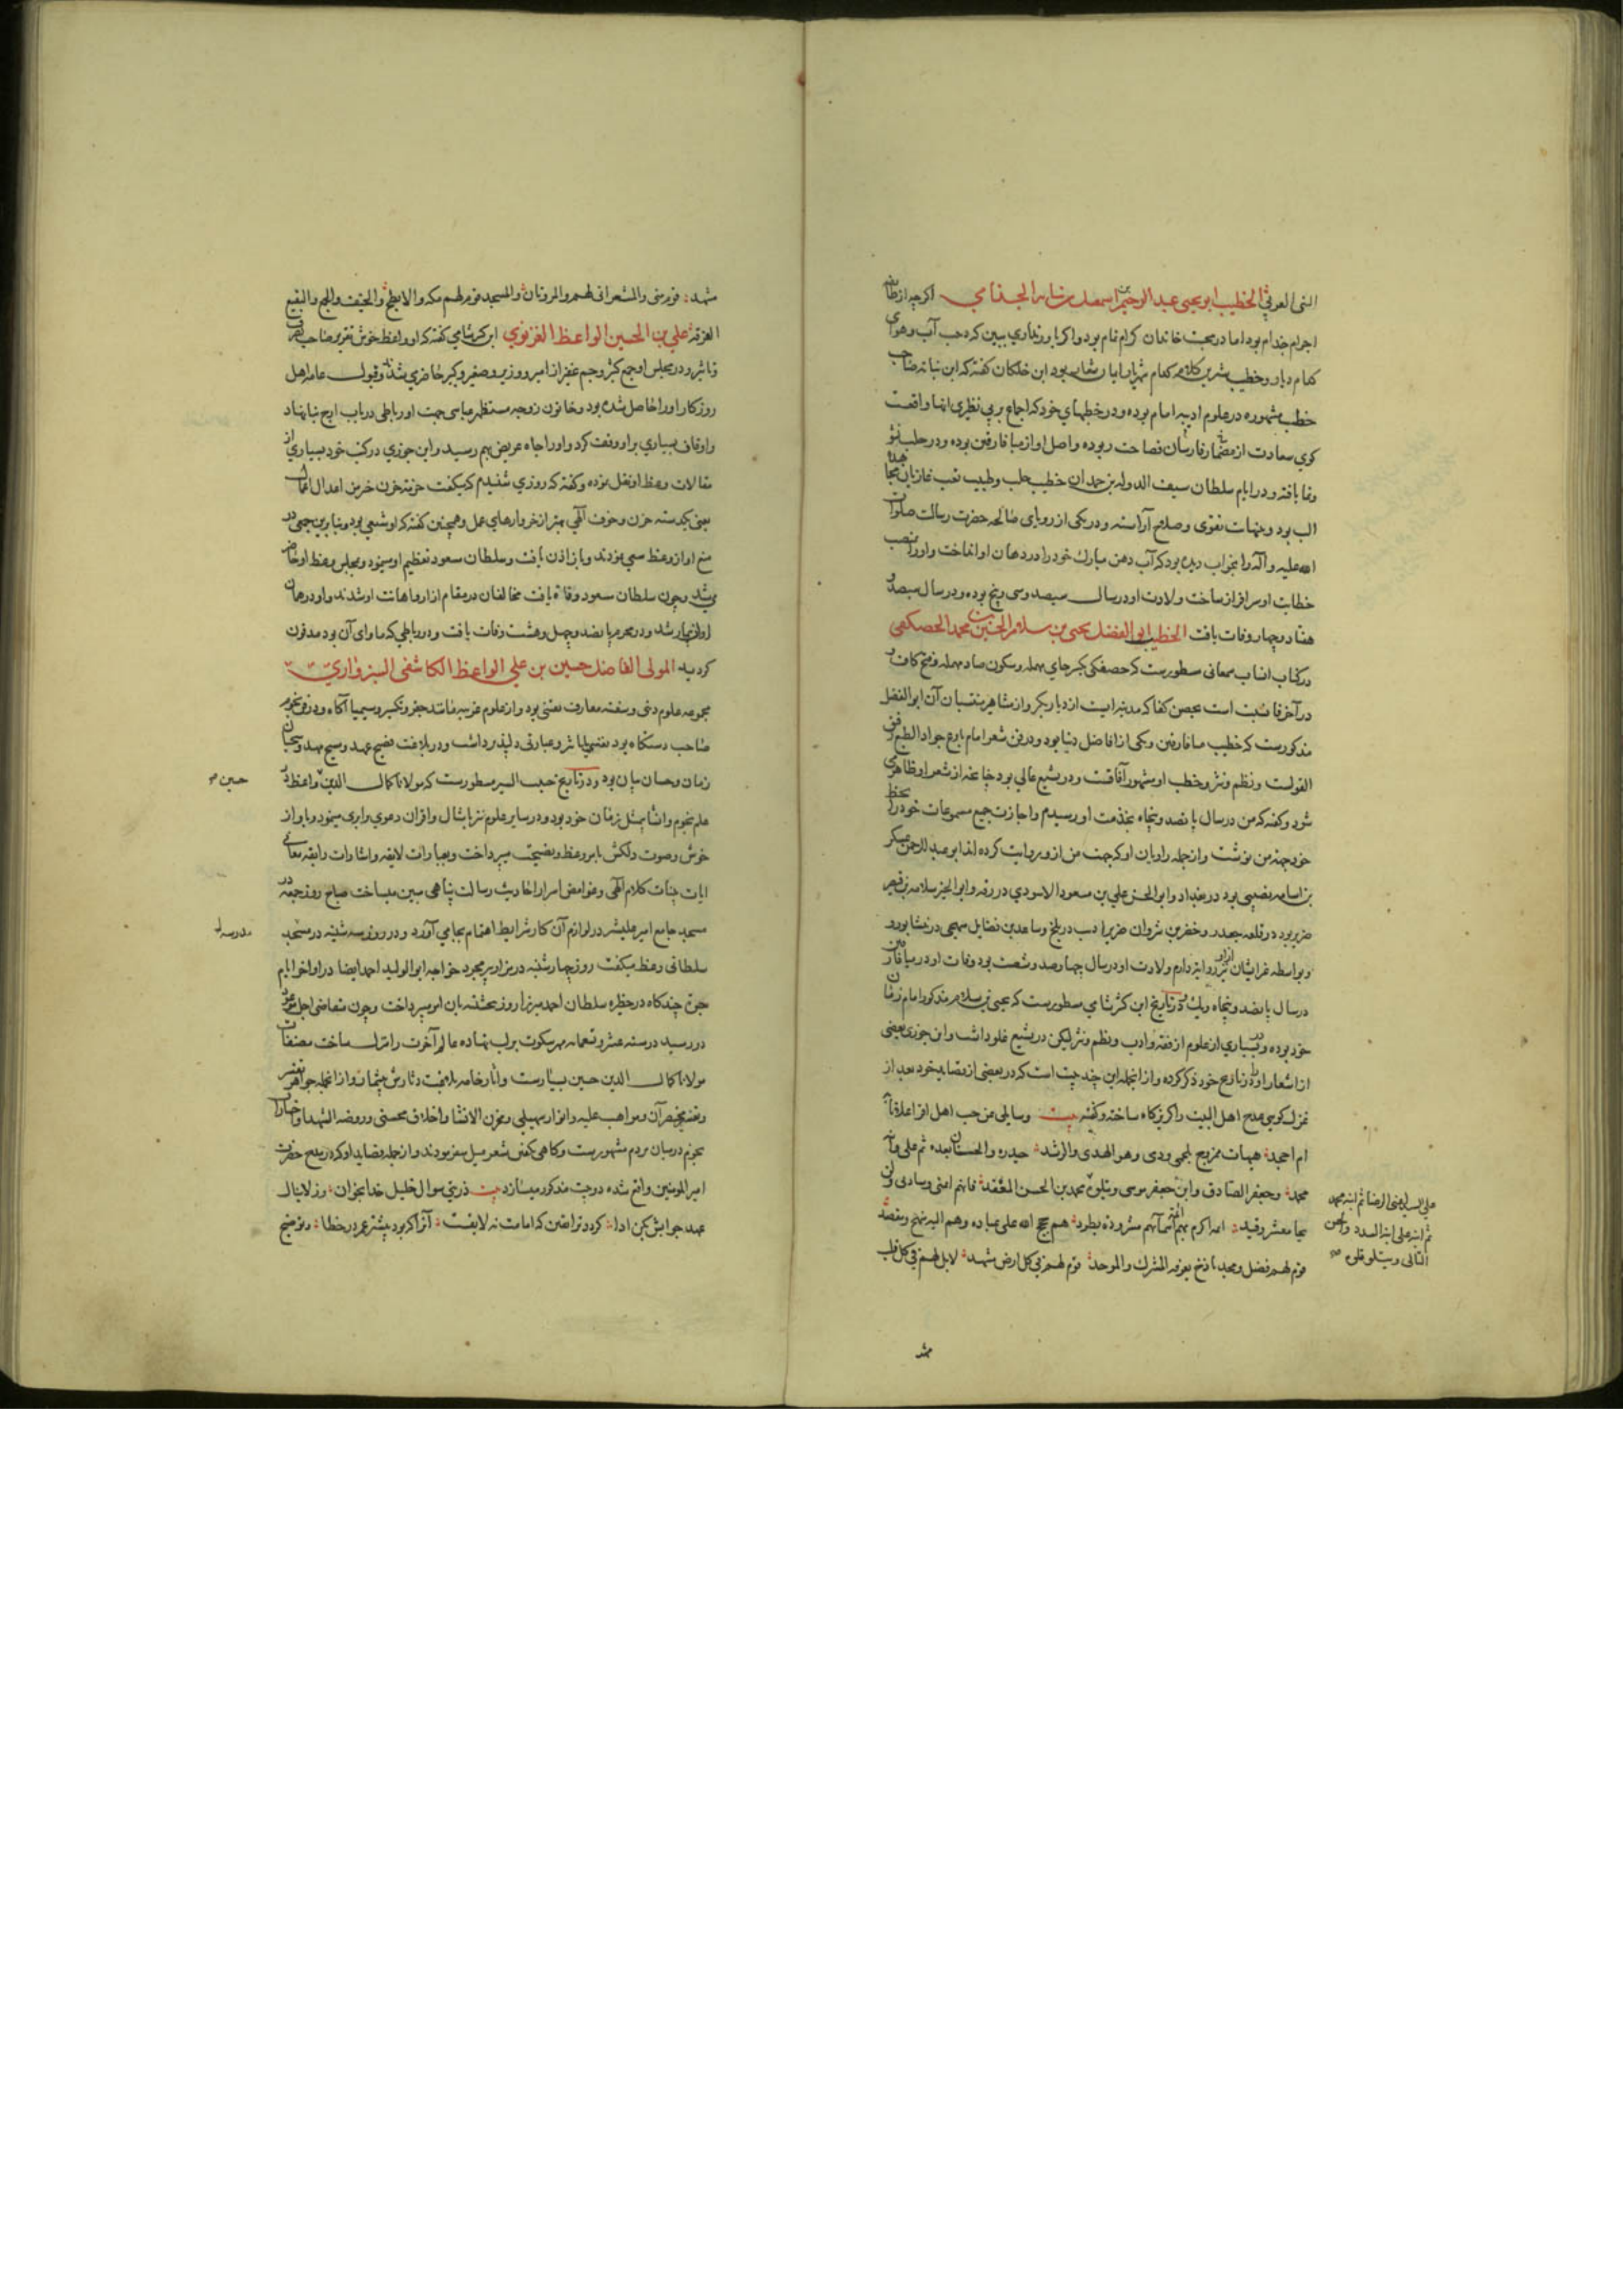 النبی العربی الخطیب ابو یحیی عبد الرحیم بن اسمعیل بن نباته الجذامی اگرچه از طایفه
اجرام جذام بود اما در محبت خاندان کرام تمام بود و اکر باور نداری ببین که در حب آب و هوای
کدام دیار و خطیب شیرین کلام کدام شهریار ابان شعار بود ابن خلکان کفته که ابن نباته صاحب
خطب مشهوره در علوم ادبیه امام بوده و در خطبهای خود که اجماع بر بی نظیری انها واقعست
کوی سعادت از مضمار فارسان فصاحت ربوده و اصل او از میافارقین بوده و در حلب نشو
و نما یافته و در ایام سلطان سیف الدوله بن حمدان خطیب حلب و طبیب تعب غازیان
الب بود و بنهایت تقوی و صلاح آراسته و در یکی از رویای صالحه حضرت رسالت صلوات
الله علیه و آله را بخواب دیده بود که آب دهن مبارک خود را در دهان او انداخت و او را بمنصب
خطابت او سرافراز ساخت ولادت او در سال سیصد و سی و پنج بوده و در سال سیصد و
هفتاد و چهار وفات یافت الخطیب ابو الفضل یحیی بن سلامه الحسین بن محمد الحصکفی
در کتاب انساب سمعانی مسطورست که حصفکی بکسر حای مهمله و سکون صاد مهمله و فتح کاف و
در آخر فا نسبت است بحصن کفا که مدینه ایست از دیار بکر و از مشاهیر منتسبان آن ابو الفضل
مذکورست که خطیب میافارقین و یکی از افاضل دنیا بود و در فن شعر امام بارع جواد الطبع رقیق
القولست و نظم و نثر و خطب او مشهور آفاقست و در تشیع عالی بود چنانچه از شعر او ظاهر می
شود و کفته که من در سال پانصد و پنجاه بخدمت او رسیدم و اجازت جمیع مسموعات خود را بخط
خود جهة من نوشت و از جمله راویان او که جهت من از وروایت کرده اند ابو عبد الرحمن عسکر
بن اسامه نصیبی بود در بغداد و ابو الحسن علی بن مسعود الاسودی در رقه و ابو الخیر سلامه بن قیصر
ضریر بود در قلعه جعبر و خضر بن ثروان ضریر ادیب در بلخ و ساعد بن فضایل منبجی در نیشابور و
و بواسطه غیر ایشان نیز از او روایة دارم ولادت او در سال چهارصد و شصت بود وفات او در میافارقین
در سال پانصد و پنجاه و یک و در تاریخ ابن کثیر شامی مسطورست که یحیی بن سلامه مذکور امام زمان
خود بوده در بسیاری از علوم از فقه و ادب و نظم و نثر لیکن در تشیع غلو داشت و ابن جوزی بعضی
از اشعار او را در تاریخ خود ذکر کرده و از انجمله این چند بیت است که در بعضی از قصاید خود بعد از
غزل کویی مدح اهل البیت را کریزکاه ساخته و کفته بیت وسایلی عن حب اهل اقرا علانا
ام اجحد هیهات ممزوج بلحمی ودی وهو الهدی والرشد حیدره والحسنان بعده ثم علی وابنه
محمد وجعفر الصادق وابن جعفر موسی ویتلوه محمد بن الحسن المفتقد فانهم ائمتی وسادتی وان
لحا معشر وفند ائمه اکرم بهم ائمه اسمائهم مسروده تطرد هم حجج الله علی عباده وهم الیه منهج ومقصد
قوم لهم فضل ومجد باذخ یعرفه المشرک والموحد قوم لهم فی کل ارض مشهد لا بل لهم فی کل قلب
علی السید اعنی الرضا ثم ابنه محمد
ثم ابنه علی ابنه المسدد والحسن
التالی ویتلو تلوه صح
مشهد
مشهد قوم منی والمشعران لهم والمروتان والمسجد قوم لهم مکه والابطح والخیف والجمع والبقیع
الغرقد علی بن الحسین الواعظ الغزنوی ابن کثیر شامی کفته که او واعظ خوش تقریر صاحب
تاثیر و در مجلس او جمع کثیر و جم غفیر از امیر و وزیر و صغیر و کبیر حاضر می شدند و قبول عامه اهل
روزکار او را حاصل شده بود و خاتون زوجه مستظهر عباسی جهت او رباطی در باب ازج بنا نهاد
و اوقاف بسیاری بر او وقف کرد و او را جاه عریض بهم رسید و ابن جوزی در کتب خود بسیاری از
مقالات وعظ او نقل نموده و کفته که روزی شنیدم که میکفت حزمة حزن خیر من اعدال اعمال
یعنی یکدسته حزن و خوف الهی بهتر از خروارهای عمل و همچنین کفته که او شیعی بود و بنابرین جمعی در
منع او از وعظ سعی نمودند و باز اذن یافت و سلطان مسعود تعظیم او مینمود و بمجلس وعظ او حاضر
می شد و چون سلطان مسعود وفاة یافت مخالفان در مقام ازار و اهانت او شدند و او در همان
اوان بیمار شد و در محرم پانصد و چهل و هشت وفات یافت و در رباطی که ماوای آن بود مدفون
کردید المولی الفاضل حسین بن علی الواعظ الکاشفی السبزواری
مجموعه علوم دینی و سفینه معارف یقینی بود و از علوم غریبه مانند جفر و تکسیر و سیمیا آکاه و در فن نجوم
صاحب دستکاه بود نفسی با تاثیر و عبارتی دلپذیر داشت و در بلاغت فصیح عهد و مسیح مهد و سحبان
زمان و حسان بیان بود و در تاریخ حبیب السیر مسطورست که مولانا کمال الدین واعظ در
علم نجوم و انشا بمثل زمان خود بود و در سایر علوم نیز با امثال و اقران دعوی برابری مینمود و باواز
خوش و صوت دلکش بامر وعظ و نصیحت میپرداخت و بعبارات لایقه و اشارات رایقه معانی
ایات بینات کلام الهی و غوامض اسرار احادیث رسالت پناهی مبین میساخت صباح روز جمعه در
مسجد جامع امیر علیشیر در لوازم آن کار شرایط اهتمام بجای می آورد و در روز سه شنبه در مسجد
سلطانی وعظ میکفت روز چهارشنبه در مزار پیر مجرد خواجه ابو الولید احمد ایضا در اواخر ایام
حیوة چندکاه در حظیره سلطان احمد میرزا روز پنجشنبه بان امر میپرداخت و چون متقاضی اجل موعود
در رسید در سنه عشر و تسعمائه مهر سکوت بر لب نهاده عالم آخرت را منزل ساخت مصنفات
مولانا کمال الدین حسین بسیارست و آثار خامه بلاغت دثارش بیشمار و از انجمله جواهر تفسیر
و تفسیر مختصر آن و مواهب علیه و انوار سهیلی و مخزن الانشا و اخلاق محسنی و روضه الشهدا و اختیارات
نجوم در میان مردم مشهورست و کاهی بکفتن شعر میل مینمودند و از جمله قصاید او که در مدح حضرت
امیر المومنین واقع شده دو بیت مذکور میسازد بیت ذریتی سوال خلیل خدا بخوان وز لا ینال
عهد جوابش بکن ادا کردد ترا یقین که امامت نه لایقست آنرا که بوده بیشتر عمر در خطا و توضیح
حسین صح
مدرسه